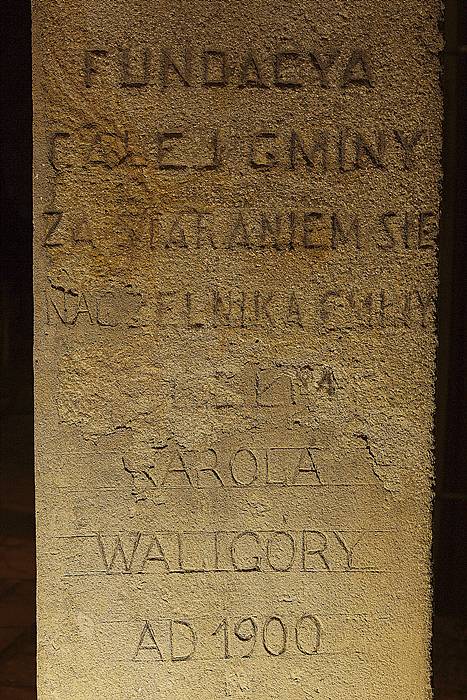 FUNDACYA
CAŁEJ GMINY
ZA STARANIEM SIE
NACZELNIKA GMINY
KAROLA
WALIGÓRY
AD 1900